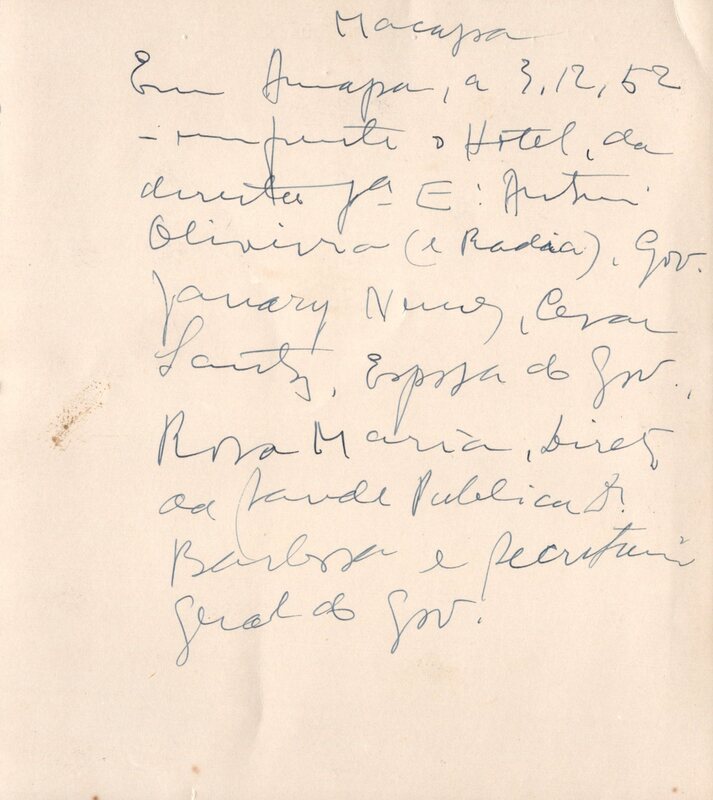 Macapa
Em Amapa, a 3,12,52
- em frente o Hotel, da
direita pª E: Artur
Oliveira (e Radia), Gov.
Janary Nunes, Cesar
Santos, Esposa do Gov.,
Rosa Maria, Diretor
da Saude Publica Dr.
Barbosa e secretario
geral do Gov.